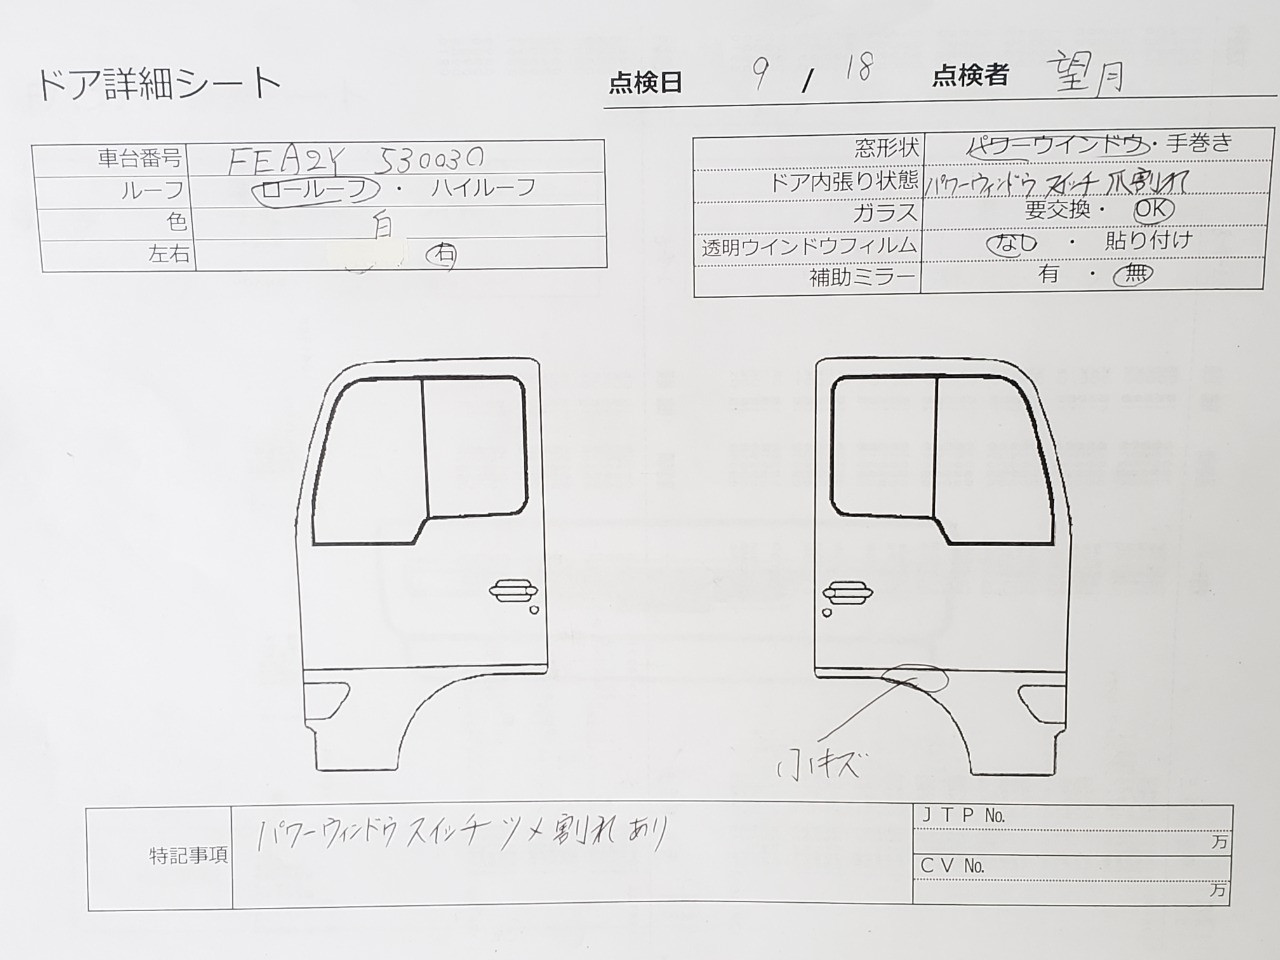 ドア詳細シート
点検日 9 / 18 点検者 望月
車台番号 FEA2Y 530030
ルーフ ロールーフ ・ ハイルーフ
色 白
左右 右
窓形状 パワーウインドウ・手巻き
ドア内張り状態 パワーウィンドウ スイッチ 爪割れ
ガラス 要交換・ OK
透明ウインドウフィルム なし ・ 貼り付け
補助ミラー 有 ・ 無
小キズ
特記事項 パワーウィンドウ スイッチ ツメ割れあり
ＪＴＰ No.
万
ＣＶ No.
万